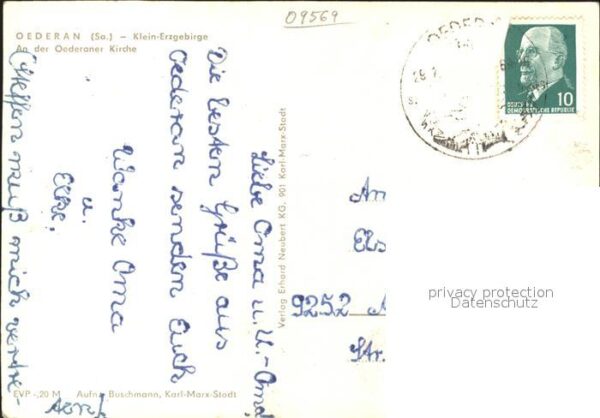 09569
OEDERAN (Sa.) — Klein-Erzgebirge
An der Oederaner Kirche
OEDERAN
29.7.
DEUTSCHE
DEMOKRATISCHE REPUBLIK
10
Liebe Oma u. U.-Oma!
Die besten Grüße aus
Oederan senden Euch
Wanke Oma
u.
Elke.
(Steffen muß mich vertre-
ten!)
Verlag Erhard Neubert KG, 901 Karl-Marx-Stadt
An
Els
9252
Str.
privacy protection
Datenschutz
EVP -,20 M Aufn. Buschmann, Karl-Marx-Stadt